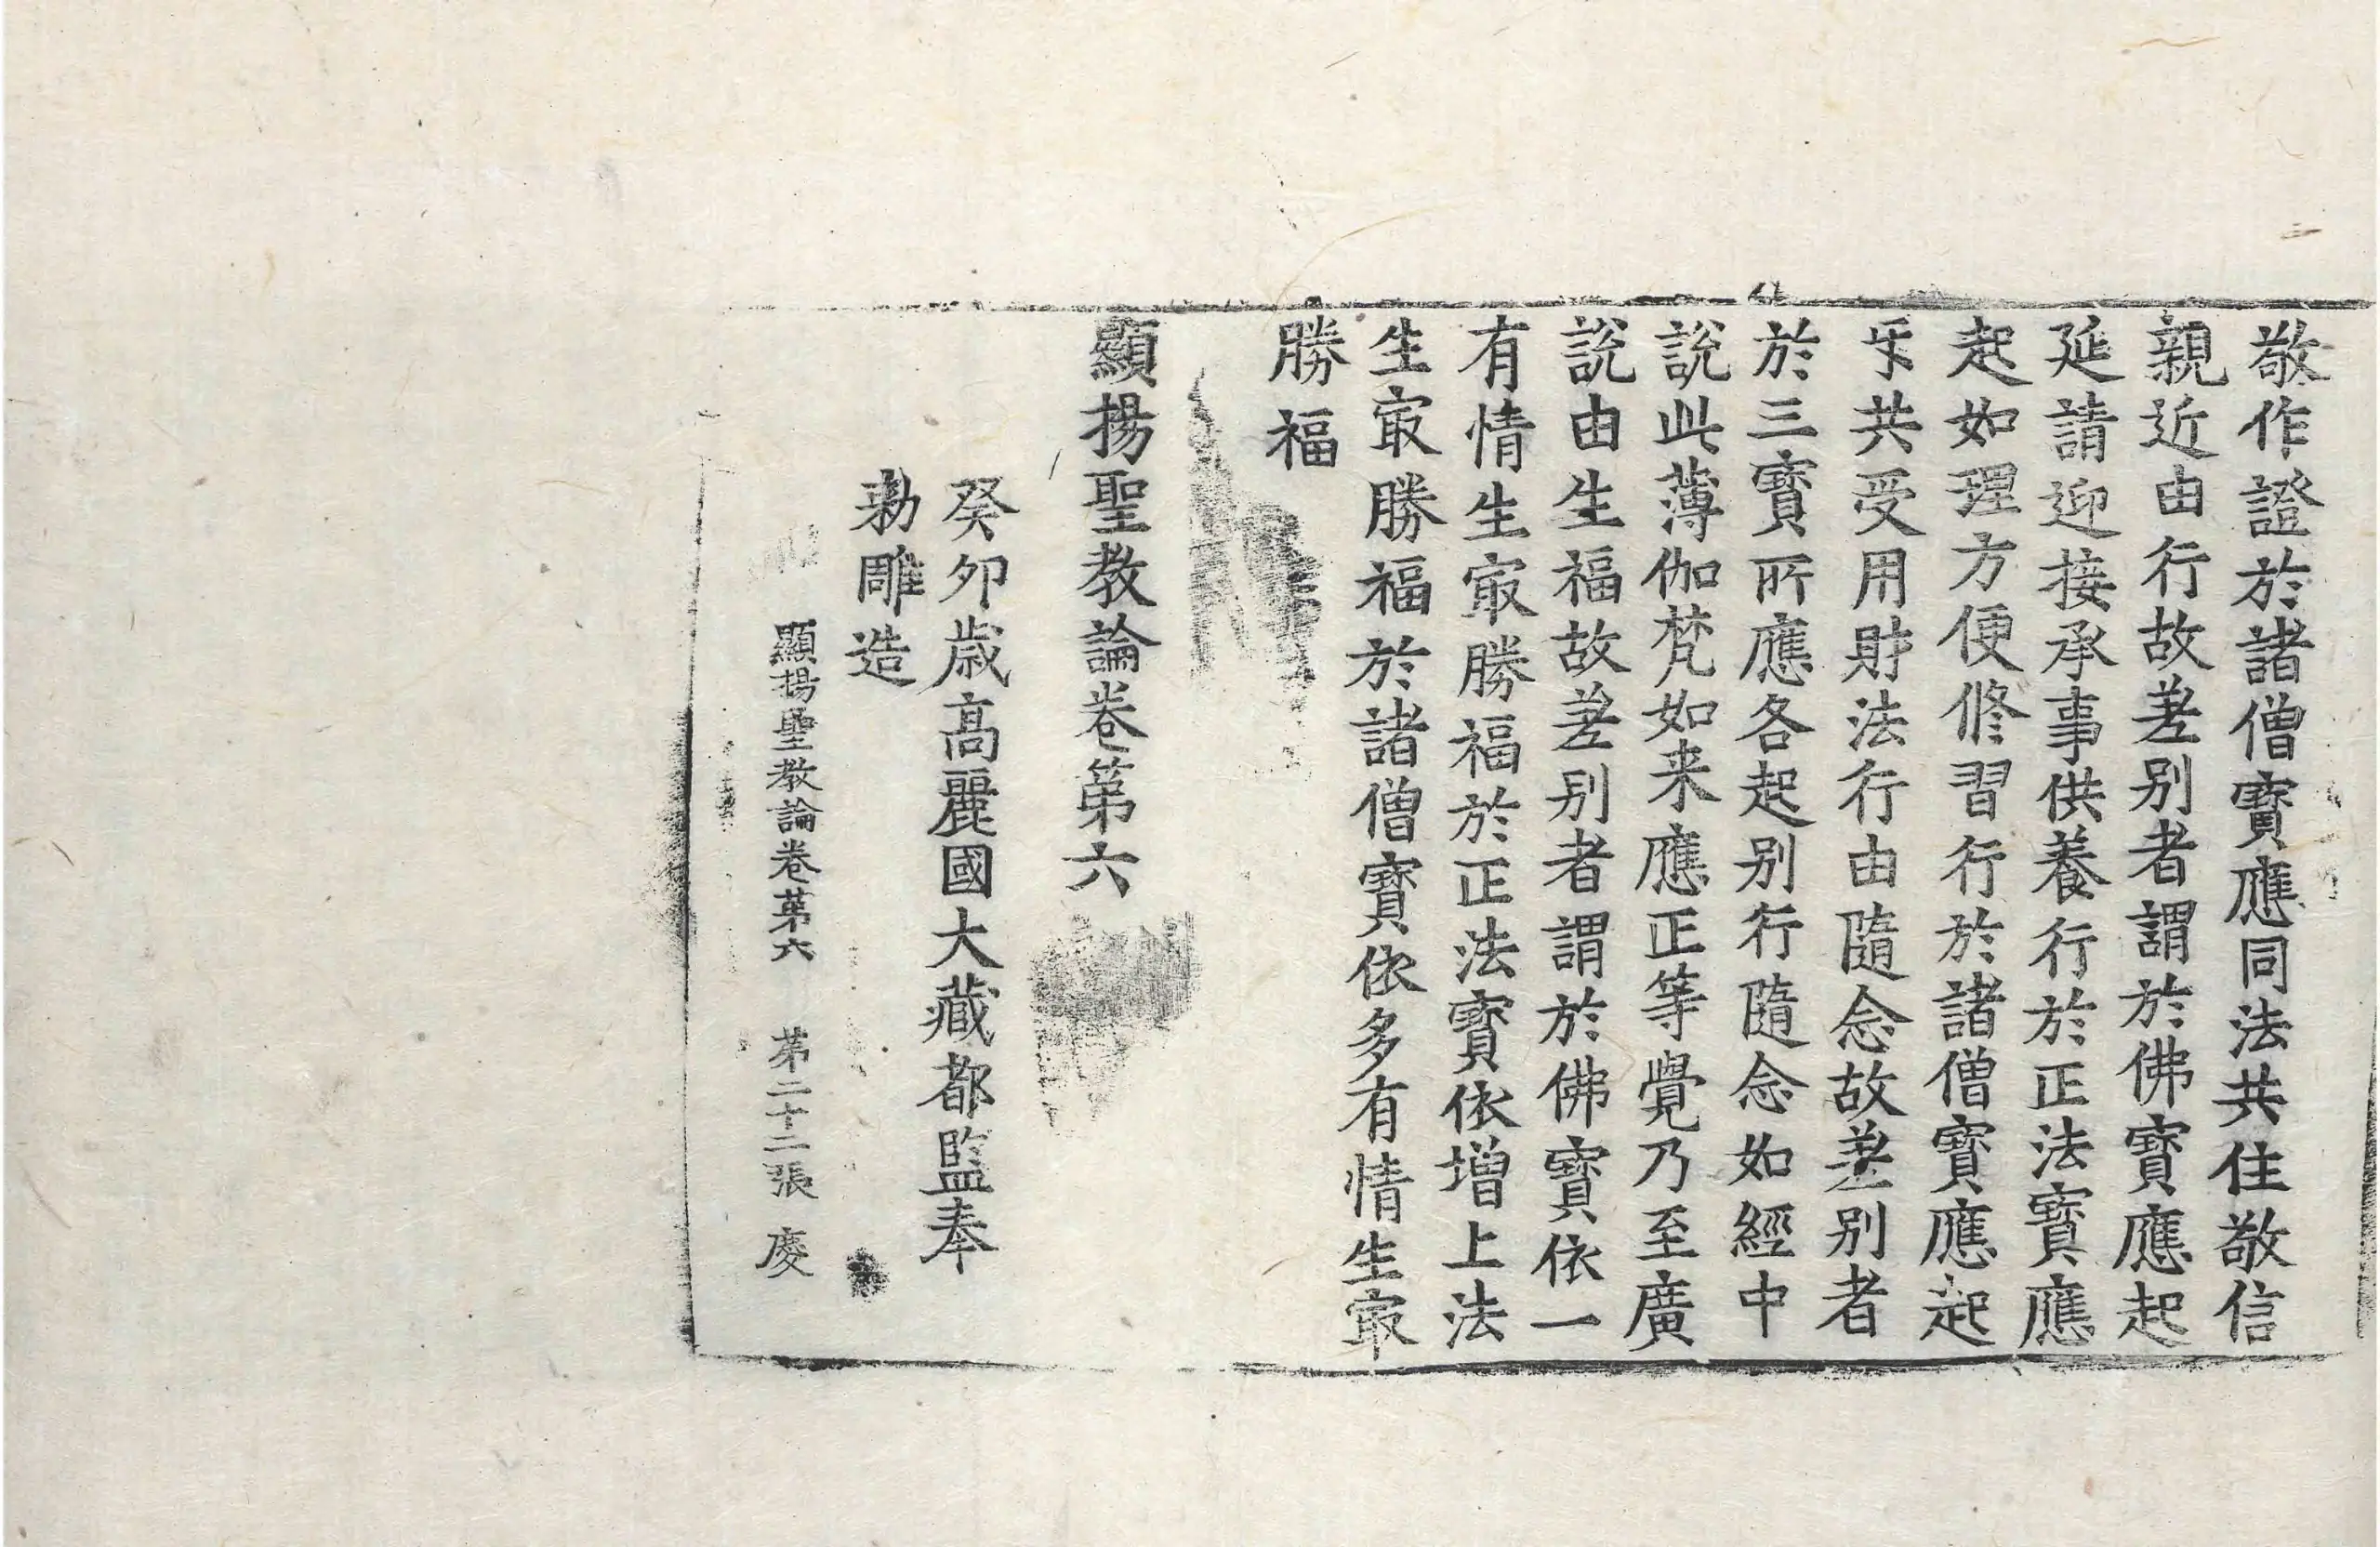 敬作證於諸僧寶應同法共住敬信
親近由行故差别者謂於佛寶應起
延請迎接承事供養行於正法寶應
起如理方便修習行於諸僧寶應起
㸦共受用財法行由隨念故差别者
於三寶所應各起别行隨念如經中
說此薄伽梵如来應正等覺乃至廣
說由生福故差别者謂於佛寶依一
有情生㝡勝福於正法寶依增上法
生㝡勝福於諸僧寶依多有情生㝡
勝福
顯揚聖教論卷第六
癸卯歳高麗國大藏都監奉
勑雕造
顯揚聖教論卷第六 第二十二張 慶